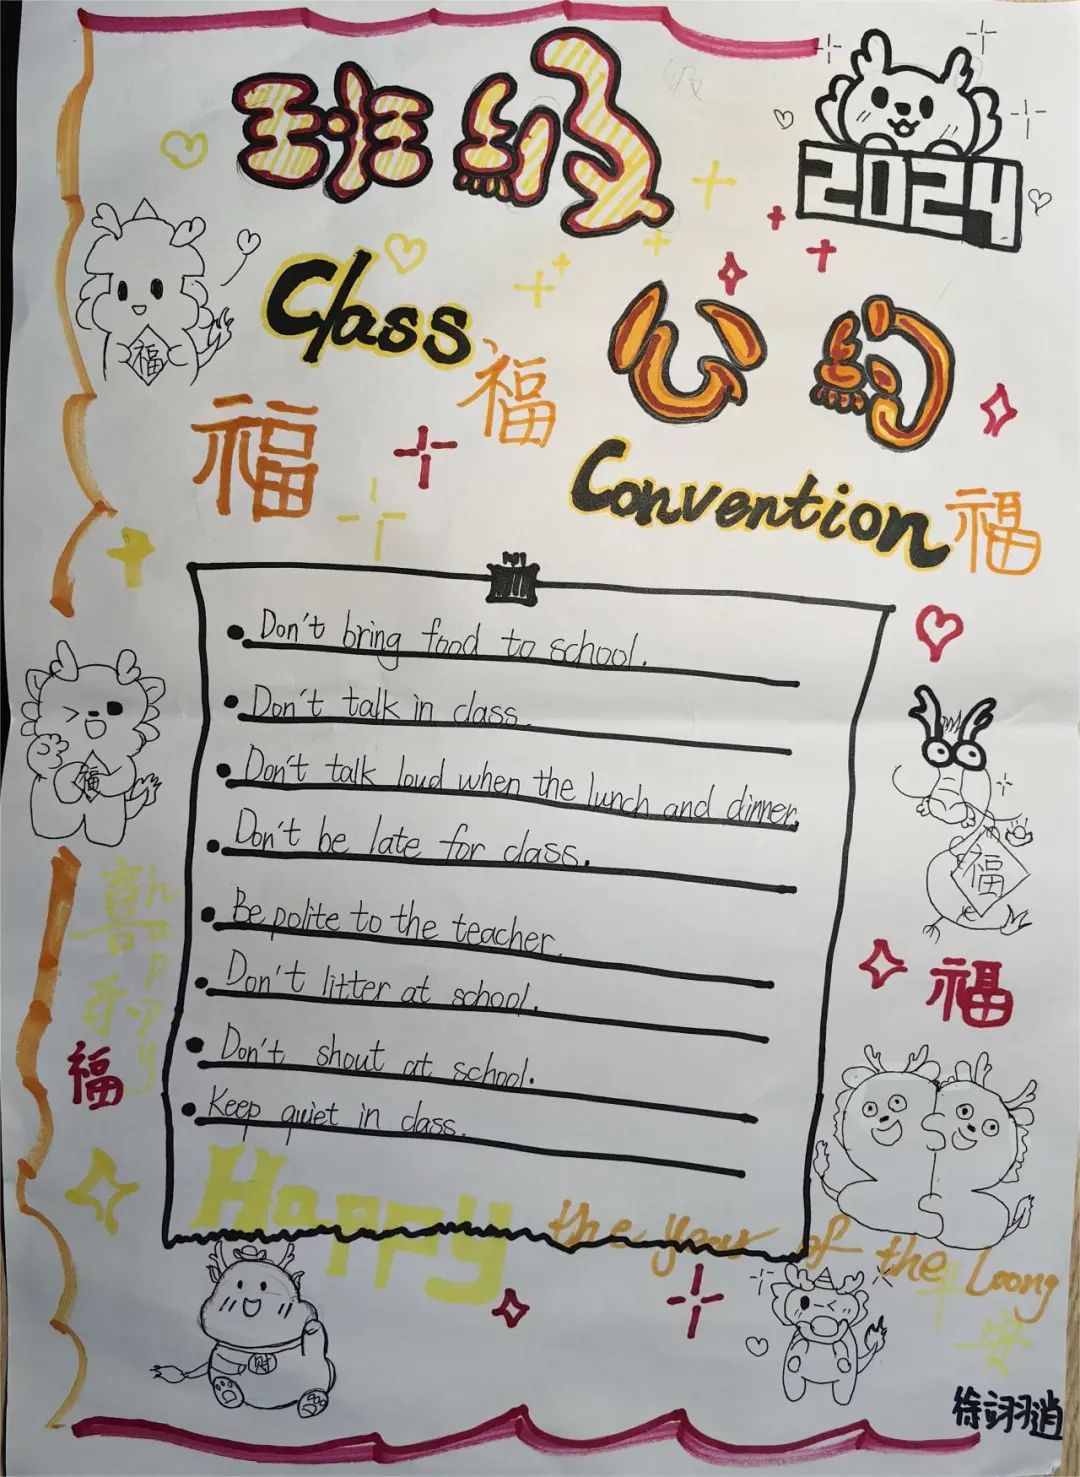 班级
级
2024
Class
公约
福
福
福
Convention
福
Don't bring food to school.
Don't talk in class.
Don't talk loud when the lunch and dinner.
福
Don't be late for class.
福
Be polite to the teacher.
Don't litter at school.
福
happy
Don't shout at school.
福
Keep quiet in class.
Happy
the year of the Loong
财
年
安
徐翊逍